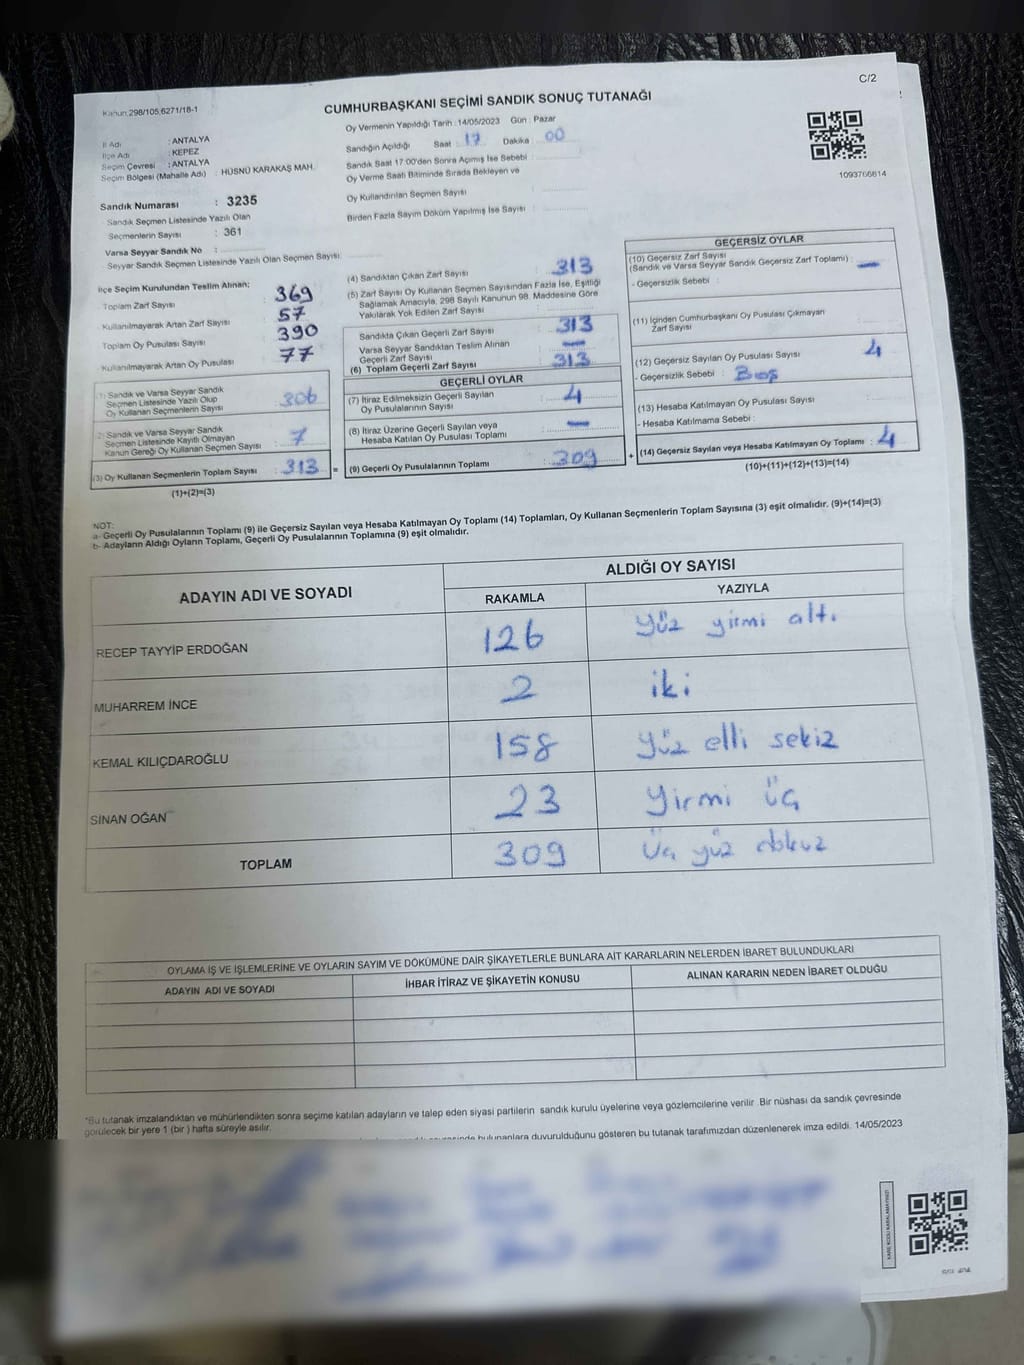 C/2
Kanun:298/105,6271/18-1
CUMHURBAŞKANI SEÇİMİ SANDIK SONUÇ TUTANAĞI
Oy Vermenin Yapıldığı Tarih :14/05/2023 Gün : Pazar
İl Adı : ANTALYA
İlçe Adı : KEPEZ
Seçim Çevresi : ANTALYA
Seçim Bölgesi (Mahalle Adı) : HÜSNÜ KARAKAŞ MAH.
Sandığın Açıldığı Saat : 17 Dakika : 00
Sandık Saat 17:00'den Sonra Açımış İse Sebebi :
Oy Verme Saati Bitiminde Sırada Bekleyen ve
Oy Kullandırılan Seçmen Sayısı :
Birden Fazla Sayım Döküm Yapılmış İse Sayısı :
1093766614
Sandık Numarası : 3235
Sandık Seçmen Listesinde Yazılı Olan
Seçmenlerin Sayısı : 361
Varsa Seyyar Sandık No :
Seyyar Sandık Seçmen Listesinde Yazılı Olan Seçmen Sayısı:
İlçe Seçim Kurulundan Teslim Alınan;
Toplam Zarf Sayısı : 369
Kullanılmayarak Artan Zarf Sayısı : 57
Toplam Oy Pusulası Sayısı : 390
Kullanılmayarak Artan Oy Pusulası : 77
(1) Sandık ve Varsa Seyyar Sandık
Seçmen Listesinde Yazılı Olup
Oy Kullanan Seçmenlerin Sayısı : 306
(2) Sandık ve Varsa Seyyar Sandık
Seçmen Listesinde Kayıtlı Olmayan
Kanun Gereği Oy Kullanan Seçmen Sayısı : 7
(3) Oy Kullanan Seçmenlerin Toplam Sayısı : 313 =
(1)+(2)=(3)
(4) Sandıktan Çıkan Zarf Sayısı : 313
(5) Zarf Sayısı Oy Kullanan Seçmen Sayısından Fazla İse, Eşitliği
Sağlamak Amacıyla, 298 Sayılı Kanunun 98. Maddesine Göre
Yakılarak Yok Edilen Zarf Sayısı :
Sandıkta Çıkan Geçerli Zarf Sayısı : 313
Varsa Seyyar Sandıktan Teslim Alınan
Geçerli Zarf Sayısı : —
(6) Toplam Geçerli Zarf Sayısı : 313
GEÇERLİ OYLAR
(7) İtiraz Edilmeksizin Geçerli Sayılan
Oy Pusulalarının Sayısı : 4
(8) İtiraz Üzerine Geçerli Sayılan veya
Hesaba Katılan Oy Pusulası Toplamı : —
(9) Geçerli Oy Pusulalarının Toplamı : 309 +
GEÇERSİZ OYLAR
(10) Geçersiz Zarf Sayısı
(Sandık ve Varsa Seyyar Sandık Geçersiz Zarf Toplamı) : —
- Geçersizlik Sebebi :
(11) İçinden Cumhurbaşkanı Oy Pusulası Çıkmayan
Zarf Sayısı :
(12) Geçersiz Sayılan Oy Pusulası Sayısı : 4
- Geçersizlik Sebebi : Boş
(13) Hesaba Katılmayan Oy Pusulası Sayısı :
- Hesaba Katılmama Sebebi :
(14) Geçersiz Sayılan veya Hesaba Katılmayan Oy Toplamı : 4
(10)+(11)+(12)+(13)=(14)
NOT:
a- Geçerli Oy Pusulalarının Toplamı (9) ile Geçersiz Sayılan veya Hesaba Katılmayan Oy Toplamı (14) Toplamları, Oy Kullanan Seçmenlerin Toplam Sayısına (3) eşit olmalıdır. (9)+(14)=(3)
b- Adayların Aldığı Oyların Toplamı, Geçerli Oy Pusulalarının Toplamına (9) eşit olmalıdır.
ADAYIN ADI VE SOYADI
ALDIĞI OY SAYISI
RAKAMLA YAZIYLA
RECEP TAYYİP ERDOĞAN 126 yüz yirmi altı
MUHARREM İNCE 2 iki
KEMAL KILIÇDAROĞLU 158 yüz elli sekiz
SİNAN OĞAN 23 yirmi üç
TOPLAM 309 Üç yüz dokuz
OYLAMA İŞ VE İŞLEMLERİNE VE OYLARIN SAYIM VE DÖKÜMÜNE DAİR ŞİKAYETLERLE BUNLARA AİT KARARLARIN NELERDEN İBARET BULUNDUKLARI
ADAYIN ADI VE SOYADI İHBAR İTİRAZ VE ŞİKAYETİN KONUSU ALINAN KARARIN NEDEN İBARET OLDUĞU
*Bu tutanak imzalandıktan ve mühürlendikten sonra seçime katılan adayların ve talep eden siyasi partilerin sandık kurulu üyelerine veya gözlemcilerine verilir .Bir nüshası da sandık çevresinde
görülecek bir yere 1 (bir ) hafta süreyle asılır.
bulunanlara duyurulduğunu gösteren bu tutanak tarafımızdan düzenlenerek imza edildi. 14/05/2023
KARE KODU KARALAMAYINIZ!